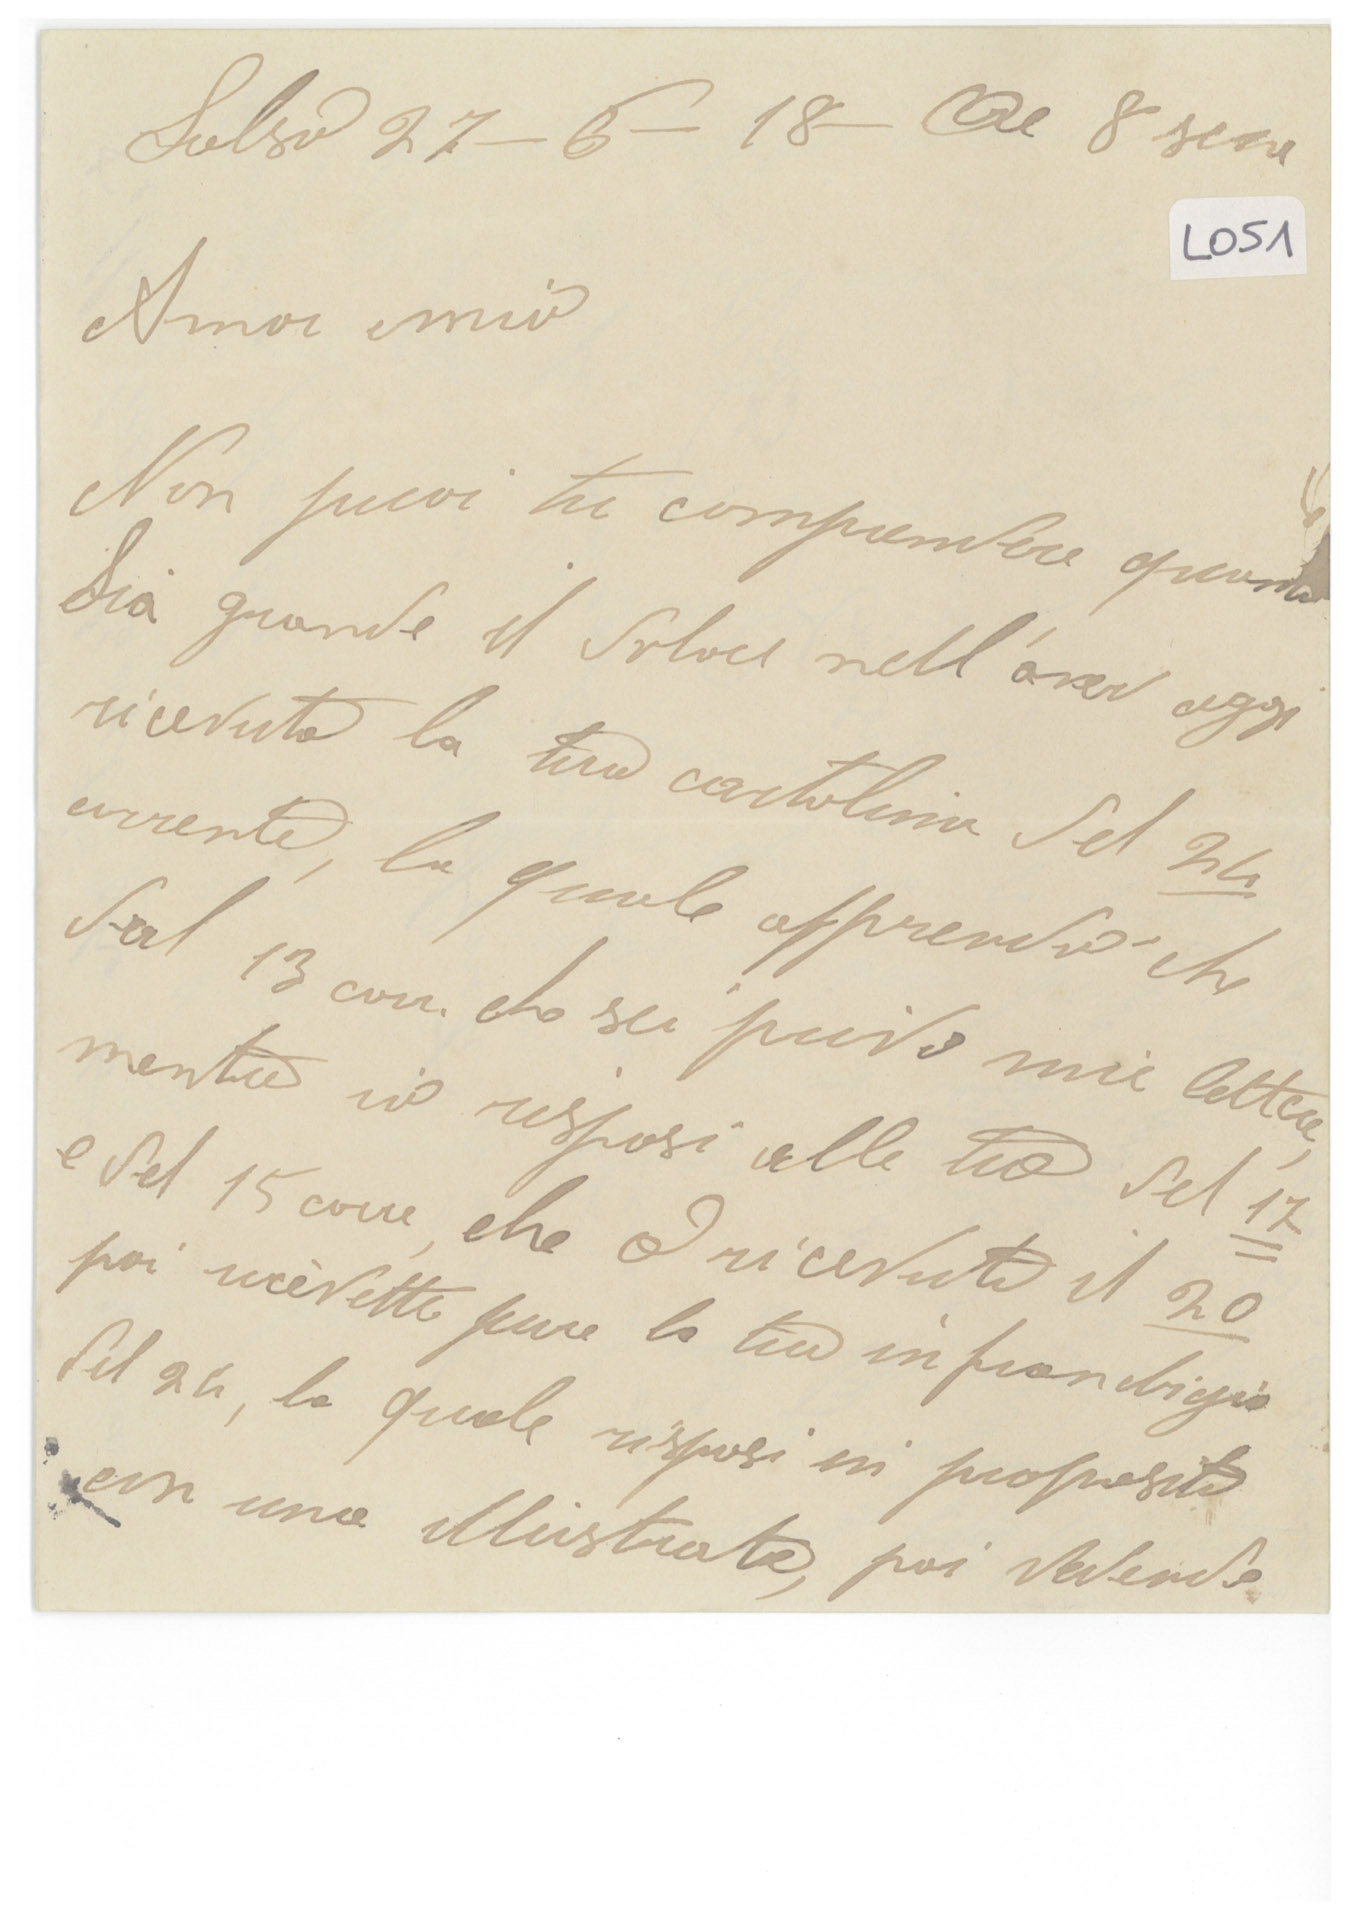 Salso 27-6-18- Ore 8 sera
L051
Amor mio
Non puoi tu comprendere quanto
Sia grande il dolore nell'aver oggi
ricevuto la tua cartolina del 24
corrente, la quale apprendo che
dal 13 corr. che sei privo mie lettere,
mentre io risposi alle tue del 17
e del 15 corre, che ò ricevute il 20
poi ricevetti pure la tua in franchigia
del 24, la quale risposi in proposito
con una illustrata, poi vedendo